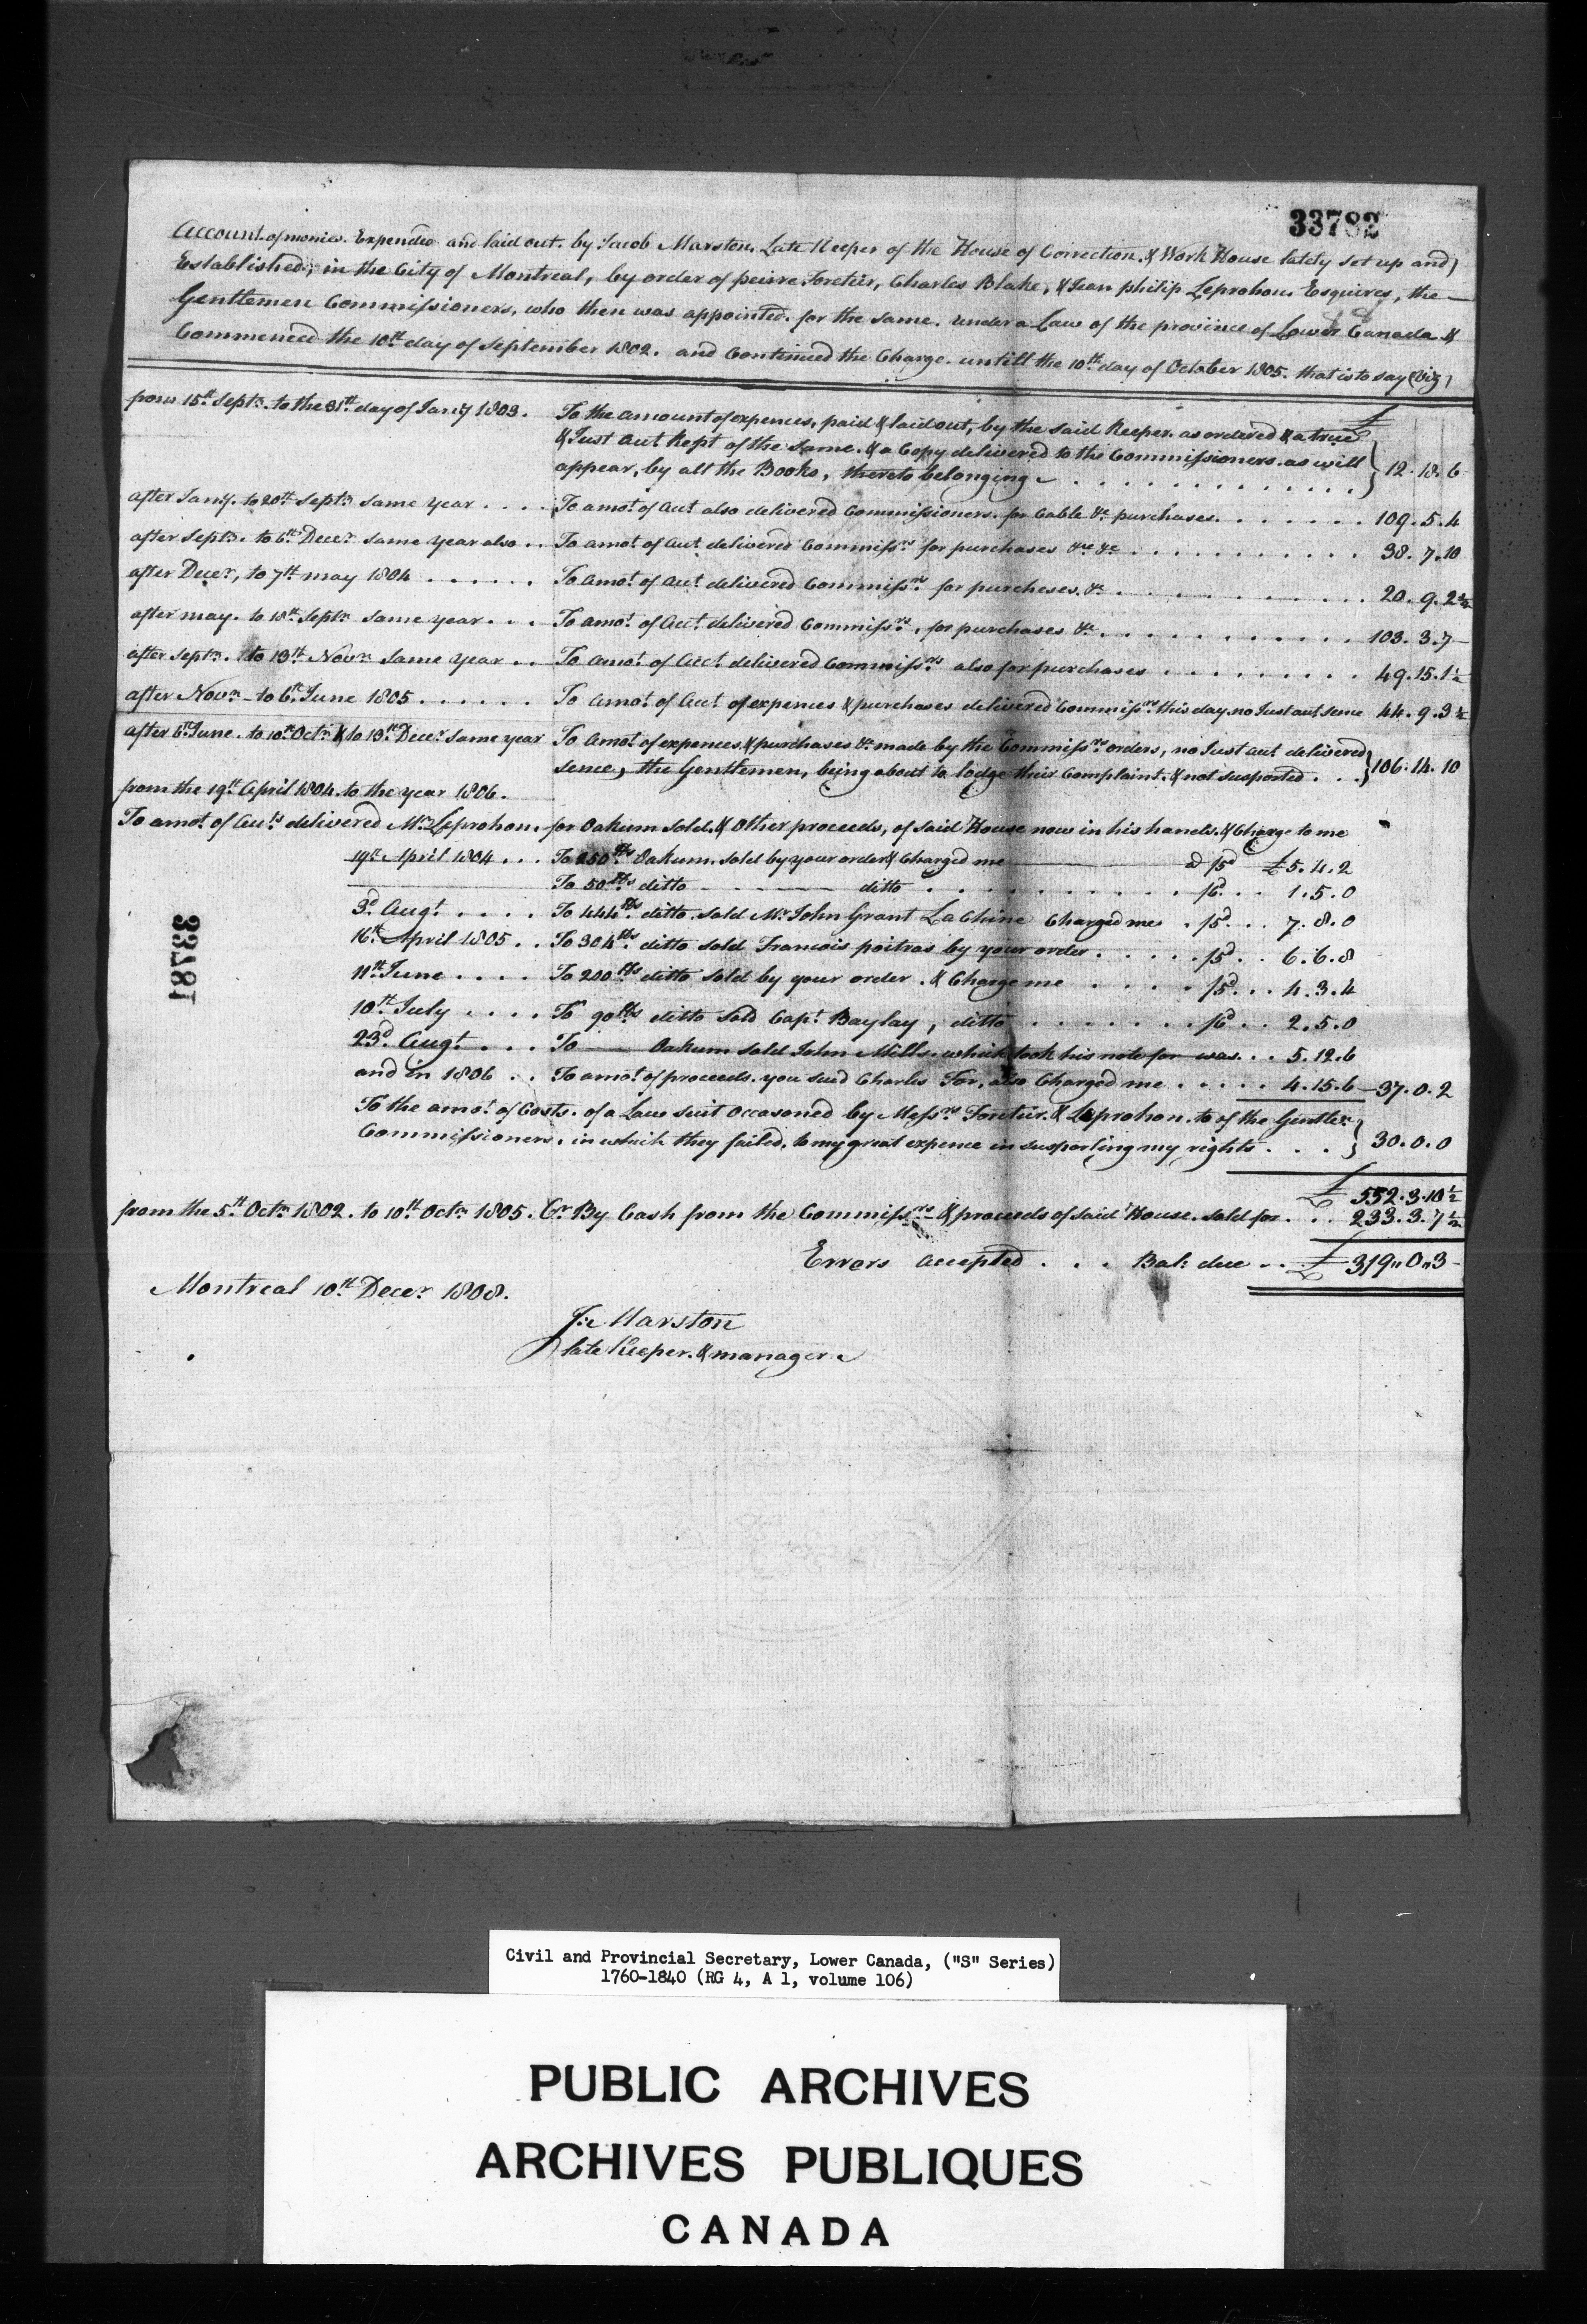 33782
Account of monies Expended and laid out by Jacob Marston, Late Keeper of the House of Correction & Work House lately set up and
Established, in the City of Montreal, by order of peirre Foretier, Charles Blake, & Jean philip Leprohon Esquires, the
Gentlemen Commissioners, who then was appointed for the same, under a Law of the province of Lower Canada &
Commenced the 10th day of September 1802. and Continued the Charge untill the 10th day of October 1805. that is to say (Viz)
from 15th Septr. to the 31st day of Jany 1803. To the amount of expences, paid & laid out, by the said Keeper as ordered & a true £
& Just Acct Kept of the same. & a Copy delivered to the Commissioners. as will
appear, by all the Books, thereto belonging . . . 12.18.6
after Jany. to 20th Septr. same year . . . . To amot. of Acct also delivered Commissioners. for Cable &c purchases . . . . 109.5.4
after Septr. to 6th Decer. same year also . . To amot. of Acct. delivered Commissrs for purchases &c &c . . . . 38.7.10
after Decer, to 7th may 1804 . . . . . . To amot. of Acct delivered Commissrs for purcheses. &c . . . . 20.9.2½
after may. to 10th Septr. same year . . . To amot. of Acct. delivered Commissrs, for purchases &c . . . . 103.3.7
after Septr. to 13th Novr. same year . . To amot. of Acct. delivered Commissrs also for purchases . . . . 49.15.1½
after Novr. to 6th June 1805 . . . . . . To amot. of Acct of expences & purchases delivered Commissrs. this day no Just acct sence 44.9.3½
after 6th June. to 10th Octr. & to 13th Decer. same year To amot of expences & purchases &c made by the Commissrs orders, no Just acct delivered
sence, the Gentlemen, being about to lodge their Complaint. & not suported . . . 106.14.10
from the 19th April 1804. to the year 1806.
To amot. of Accts delivered Mr. Leprohon, for Oakum sold & Other proceeds, of said House now in his hands. & Charge to me
19th April 1804 . . . To 250 lbs Oakum. sold by your order & Charged me a /5d £5.4.2
To 50 lbs ditto ditto . . . . /6d . . 1.5.0
3d. Augt. . . . . To 444 lbs. ditto. sold Mr. John Grant La Chine Charged me . /5d . . 7.8.0
16th April 1805 . . To 304 lbs. ditto sold Francois poitras by your order . . . . . /5d . . 6.6.8
11th June . . . . To 200 lbs ditto sold by your order . & Charge me . . . . /5d . . . 4.3.4
10th July . . . . To 90 lbs ditto Sold Capt. Baylay, ditto . . . . . . . /6d . . 2.5.0
23d. Augt. . . . To Oakum sold John Mills. which took his note for was . . . 5.12.6
and in 1806 . . To amot. of proceeds. you sued Charles For, also Charged me . . . . . 4.15.6 37.0.2
To the amot. of Costs. of a Law suit Occasoned by Messrs Foretier. & Leprohon. to of the Gentlen
Commissioners, in which they failed, to my great expence in suporting my rights . . . 30.0.0
£ 552.3.10½
from the 5th. Octr. 1802. to 10th Octr. 1805. Cr. By Cash from the Commissrs & proceeds of said House. sold for . . . 233.3.7½
Errors accepted . . . Bal: due . . £ 319"0"3
Montreal 10th Decer. 1808.
J: Marston
late Keeper. & manager
33781
Civil and Provincial Secretary, Lower Canada, ("S" Series)
1760-1840 (RG 4, A 1, volume 106)
PUBLIC ARCHIVES
ARCHIVES PUBLIQUES
CANADA